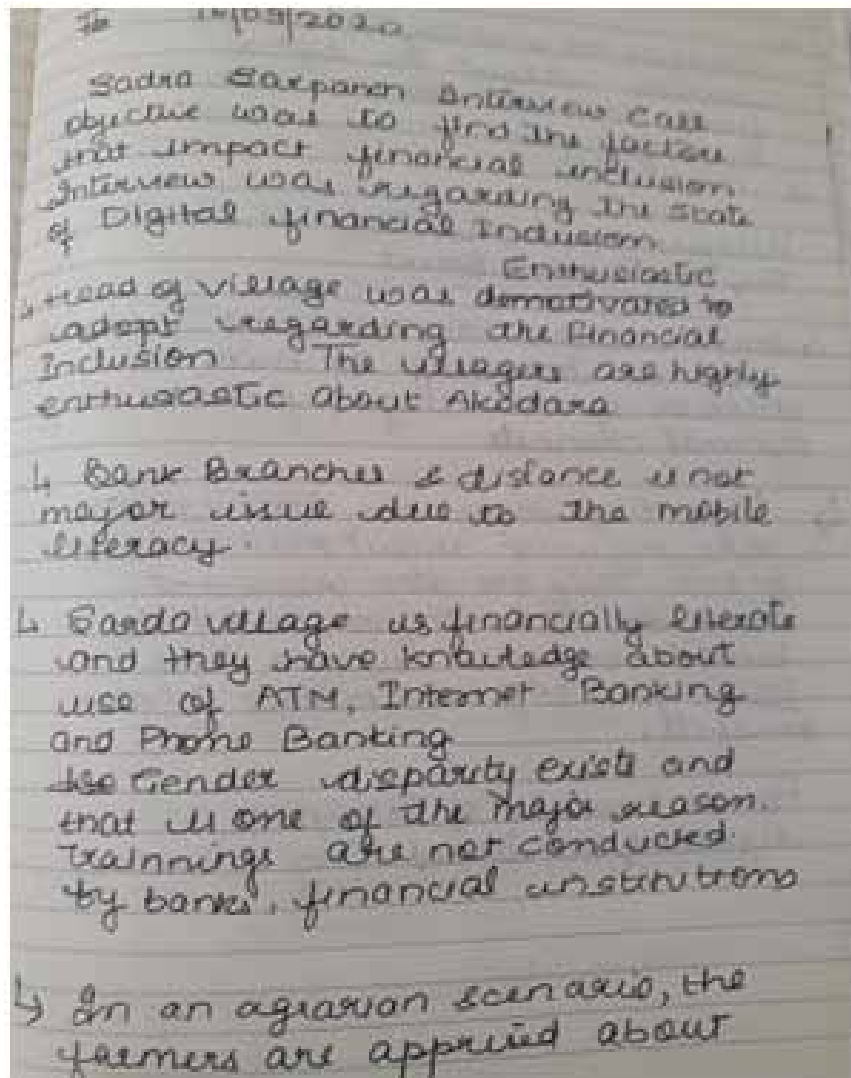 16/09/2020
Sadra Sarpanch Interview Call
objective was to find the factors
that impact financial inclusion
Interview was regarding the state
of Digital financial Inclusion.
Enthusiastic
↳ Head of village was demotivated to
adopt regarding the Financial
Inclusion. The villagers are highly
enthusastic about Akodara
↳ Bank Branches & distance is not
major issue due to the mobile
literacy.
↳ Sarda village is financially literate
and they have knowledge about
use of ATM, Internet Banking
and Phone Banking
Gender disparity exists and
that is one of the major reason.
Trainnings are not conducted
by banks, financial institutions
↳ In an agrarian scenario, the
farmers are apprised about